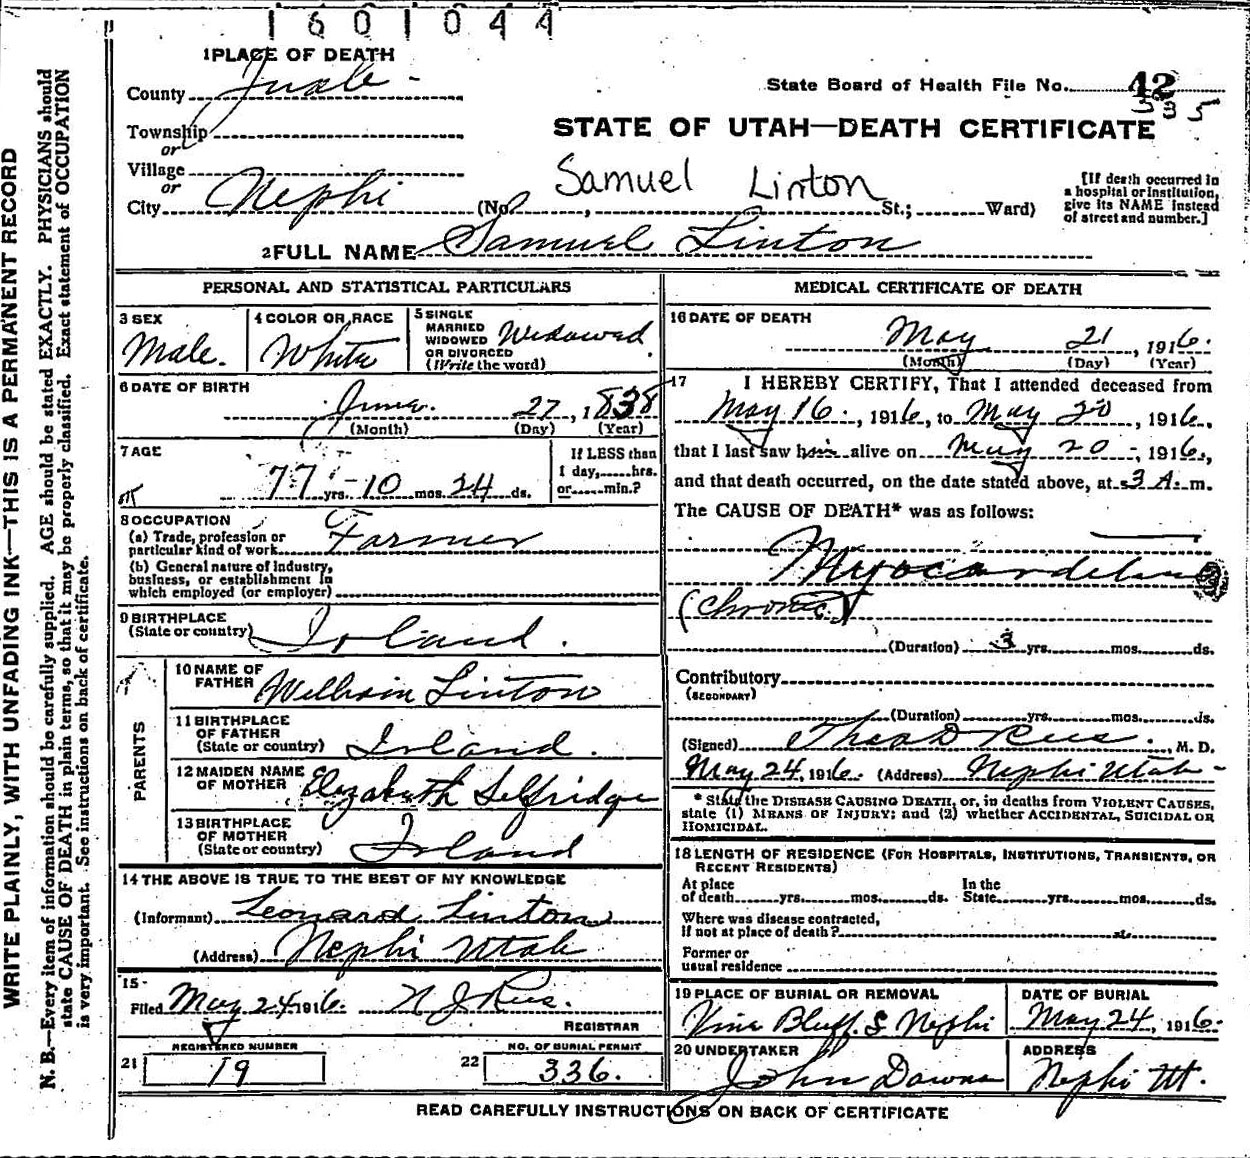 1601044
1 PLACE OF DEATH
County Juab
State Board of Health File No. 42
335
Township
or
STATE OF UTAH—DEATH CERTIFICATE
Village
or
Samuel Linton
City Nephi (No. , St.; Ward)
[If death occurred in
a hospital or institution,
give its NAME instead
of street and number.]
2 FULL NAME Samuel Linton
PERSONAL AND STATISTICAL PARTICULARS
3 SEX
Male.
4 COLOR OR RACE
White
5 SINGLE
MARRIED
WIDOWED
OR DIVORCED
(Write the word)
Widowed
6 DATE OF BIRTH
June 27, 1838
(Month) (Day) (Year)
7 AGE
77 yrs. 10 mos. 24 ds.
If LESS than
1 day, hrs.
or min.?
8 OCCUPATION
(a) Trade, profession or
particular kind of work Farmer
(b) General nature of industry,
business, or establishment in
which employed (or employer)
9 BIRTHPLACE
(State or country) Irland.
PARENTS
10 NAME OF
FATHER William Linton
11 BIRTHPLACE
OF FATHER
(State or country) Irland.
12 MAIDEN NAME
OF MOTHER Elizabeth Selfridge
13 BIRTHPLACE
OF MOTHER
(State or country) Irland
14 THE ABOVE IS TRUE TO THE BEST OF MY KNOWLEDGE
(Informant) Leonard Linton
(Address) Nephi Utah
15
Filed May 24 1916. N J Rees.
REGISTRAR
REGISTERED NUMBER
21 19
NO. OF BURIAL PERMIT
22 336.
MEDICAL CERTIFICATE OF DEATH
16 DATE OF DEATH
May 21, 1916.
(Month) (Day) (Year)
17 I HEREBY CERTIFY, That I attended deceased from
May 16., 1916, to May 20, 1916,
that I last saw him alive on May 20, 1916,
and that death occurred, on the date stated above, at 3 A. m.
The CAUSE OF DEATH* was as follows:
(Chronic)
(Duration) 3 yrs. mos. ds.
Contributory
(SECONDARY)
(Duration) yrs. mos. ds.
(Signed) Theo D Rees., M. D.
May 24, 1916. (Address) Nephi Utah
* State the DISEASE CAUSING DEATH, or, in deaths from VIOLENT CAUSES,
state (1) MEANS OF INJURY; and (2) whether ACCIDENTAL, SUICIDAL OR
HOMICIDAL.
18 LENGTH OF RESIDENCE (FOR HOSPITALS, INSTITUTIONS, TRANSIENTS, OR
RECENT RESIDENTS)
At place
of death yrs. mos. ds.
In the
State yrs. mos. ds.
Where was disease contracted,
if not at place of death?
Former or
usual residence
19 PLACE OF BURIAL OR REMOVAL
Vine Bluff. S Nephi
DATE OF BURIAL
May 24, 1916.
20 UNDERTAKER
John Downs
ADDRESS
Nephi Ut.
READ CAREFULLY INSTRUCTIONS ON BACK OF CERTIFICATE
WRITE PLAINLY, WITH UNFADING INK—THIS IS A PERMANENT RECORD
N. B.—Every item of information should be carefully supplied. AGE should be stated EXACTLY. PHYSICIANS should
state CAUSE OF DEATH in plain terms, so that it may be properly classified. Exact statement of OCCUPATION
is very important. See instructions on back of certificate.